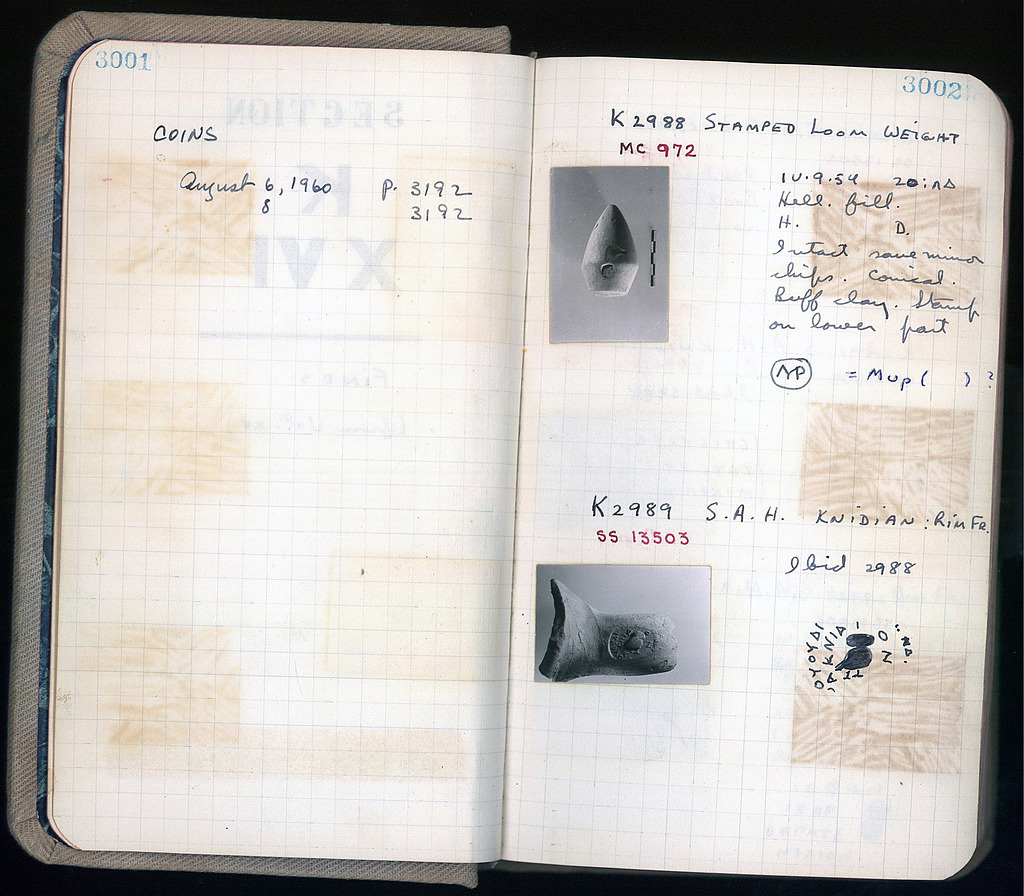 3001
COINS
August 6, 1960 p. 3192
8 3192
3002
K 2988 STAMPED LOOM WEIGHT
MC 972
20:ΝΔ
Hell. fill.
H. D.
Intact save minor
chips. Conical.
Buff clay. Stamp
on lower part
= Μυρ( ) ?
K 2989 S.A.H. KNIDIAN: RIM FR.
SS 13503
Ibid 2988